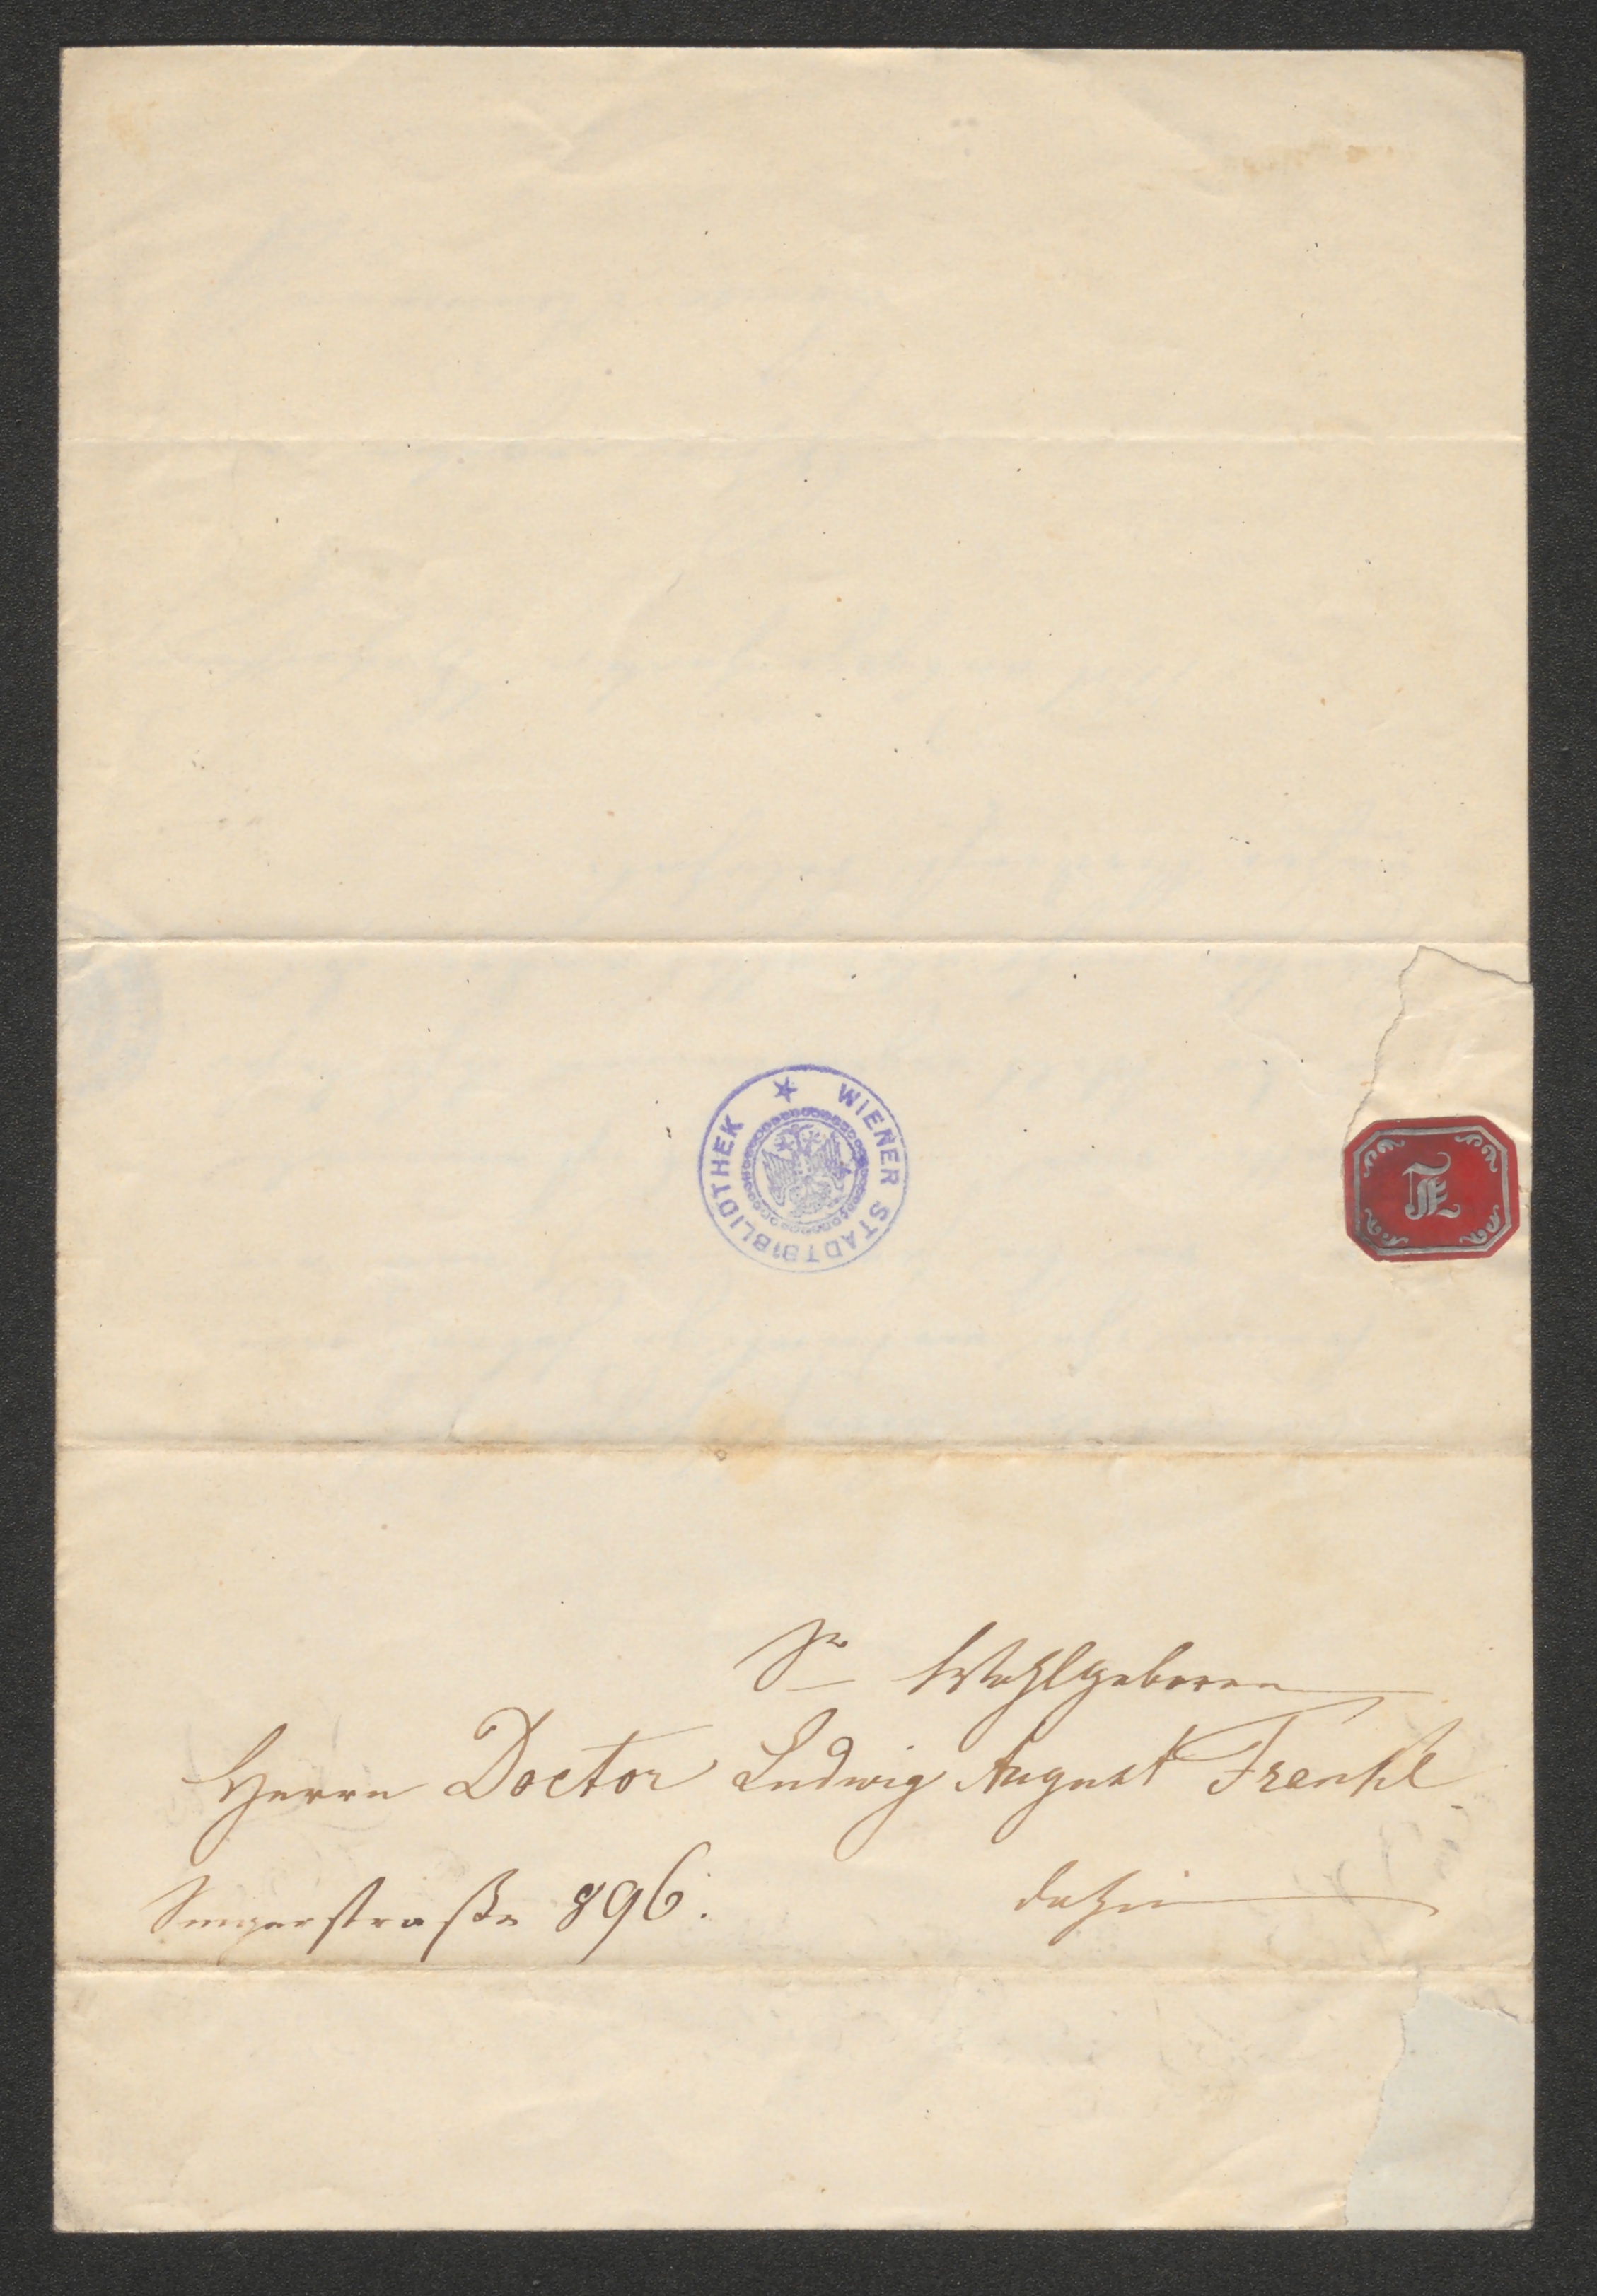 WIENER STADTBIBLIOTHEK
Sr Wohlgeboren
Herrn Doctor Ludwig August Frankl
Singerstraße 896.
dahier